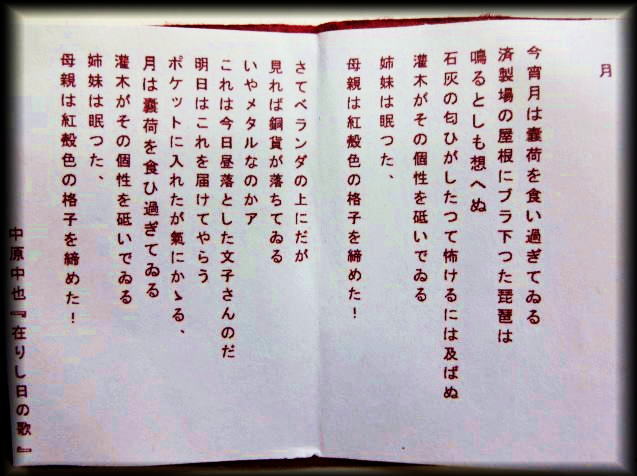 月
今宵月は蘘荷を食い過ぎてゐる
済製場の屋根にブラ下つた琵琶は
鳴るとしも想へぬ
石灰の匂ひがしたつて怖けるには及ばぬ
灌木がその個性を砥いでゐる
姉妹は眠つた、
母親は紅殻色の格子を締めた!
さてベランダの上にだが
見れば銅貨が落ちてゐる
いやメタルなのかア
これは今日昼落とした文子さんのだ
明日はこれを届けてやらう
ポケットに入れたが氣にかゝる、
月は蘘荷を食ひ過ぎてゐる
灌木がその個性を砥いでゐる
姉妹は眠つた、
母親は紅殻色の格子を締めた!
中原中也『在りし日の歌』